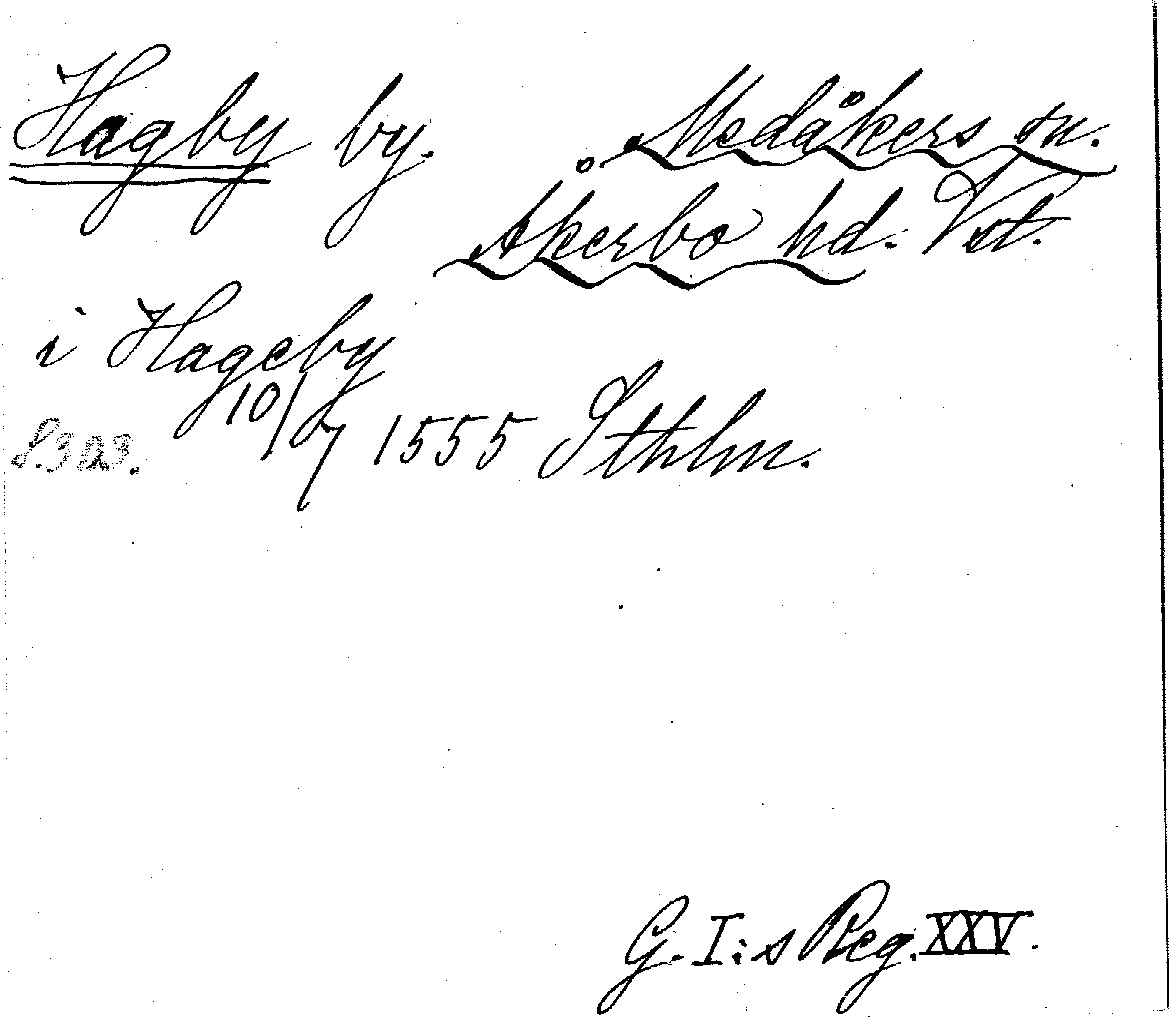 Hagby by. Medåkers sn.
Åkerbo hd. Vst.
i Hageby
10/7 1555 Sthlm.
S. 323.
G. I:s Reg. XXV.